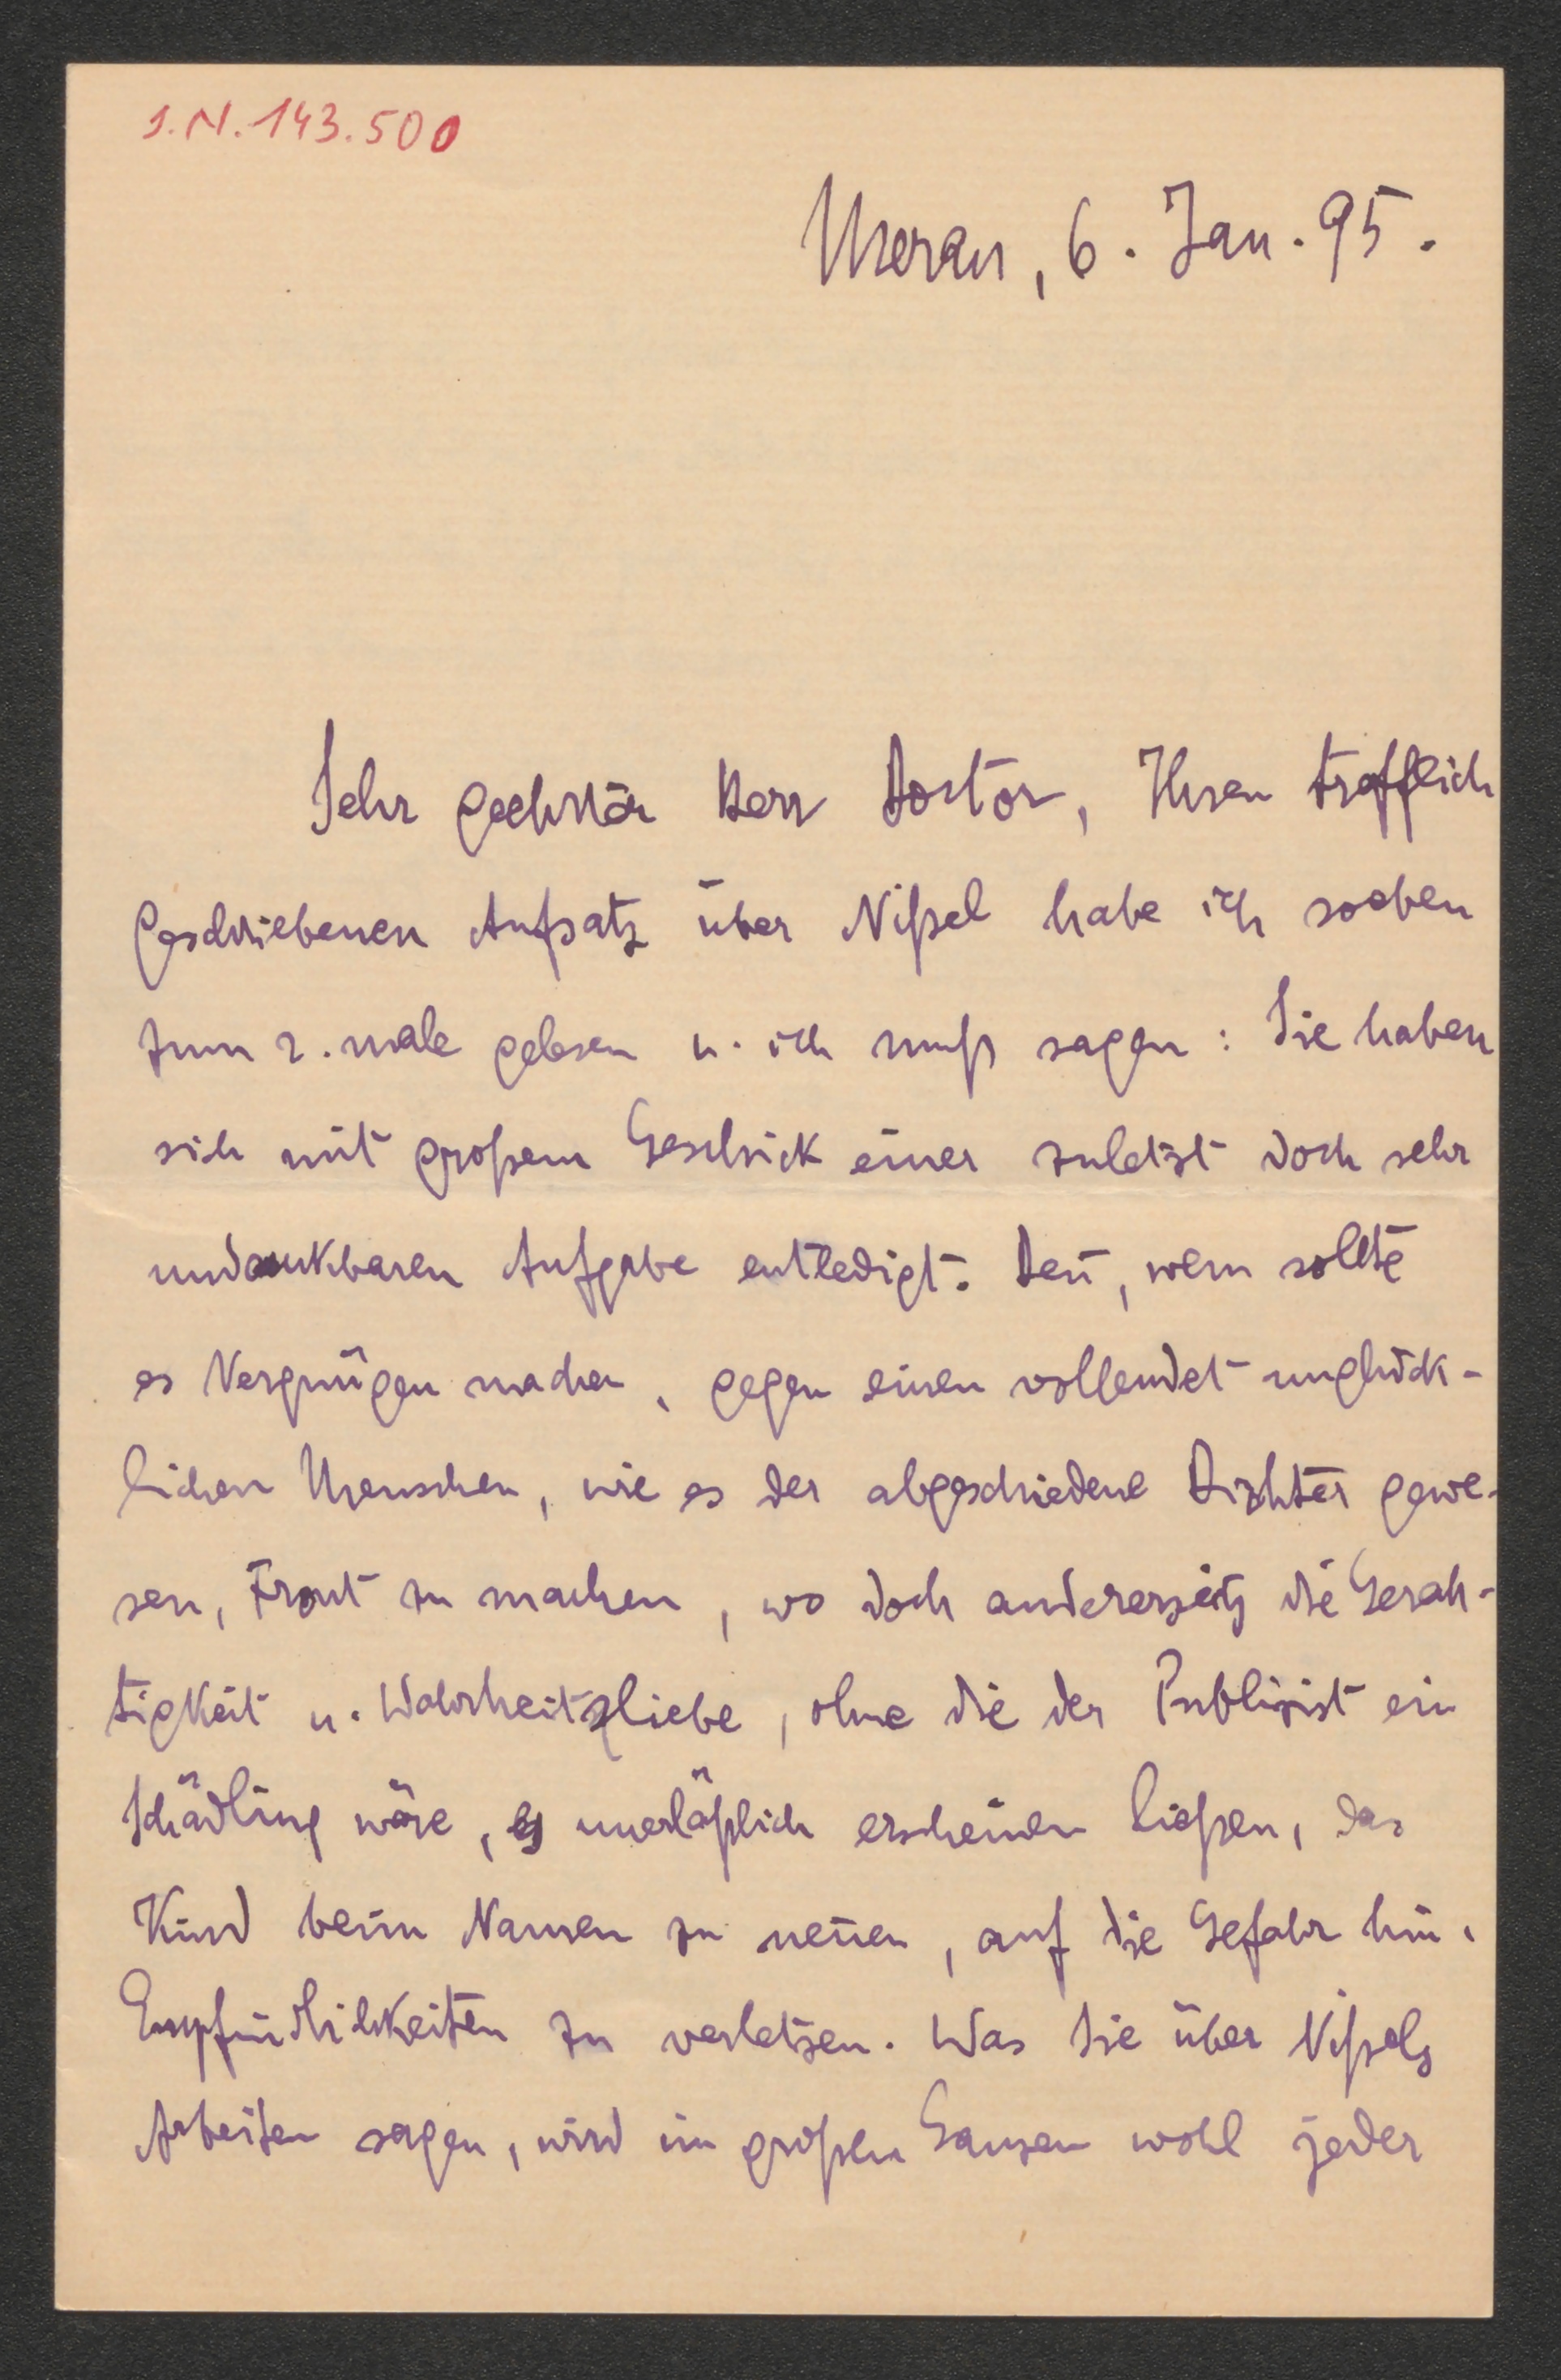 I.N. 143.500
Meran, 6. Jan. 95.
Sehr geehrter Herr Doctor, Ihren trefflich
geschriebenen Aufsatz über Nißel habe ich soeben
zum 2. male gelesen u. ich muß sagen: Sie haben
sich mit großem Geschick einer zuletzt doch sehr
undankbaren Aufgabe entledigt. Den̄, wem sollte
es Vergnügen machen, gegen einen vollendet unglück-
lichen Menschen, wie es der abgeschiedene Dichter gewe-
sen, Front zu machen, wo doch andererseits die Gerech-
tigkeit u. Wahrheitsliebe, ohne die der Publizist ein
Schädling wäre, es unerläßlich erscheinen ließen, das
Kind beim Namen zu nen̄en, auf die Gefahr hin,
Empfindlichkeiten zu verletzen. Was Sie über Nißels
Arbeiten sagen, wird im großen Ganzen wohl jeder